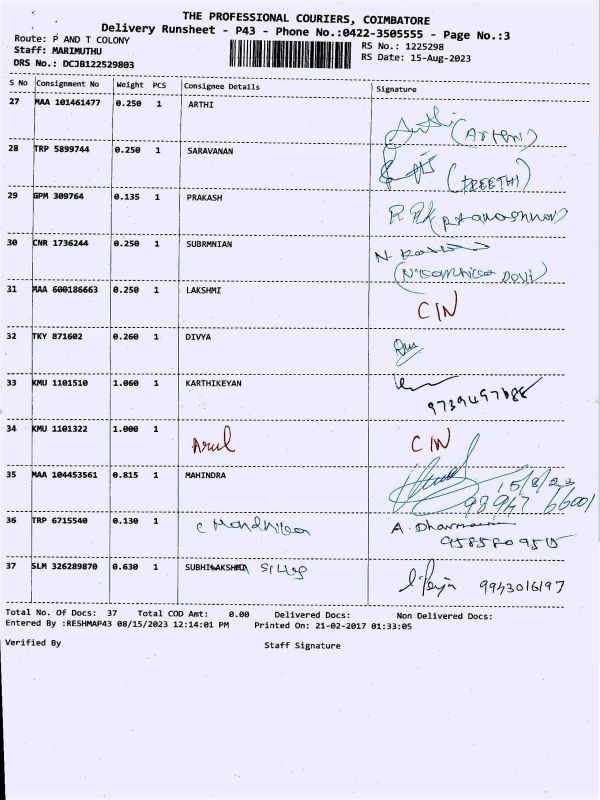 THE PROFESSIONAL COURIERS, COIMBATORE
Delivery Runsheet - P43 - Phone No.:0422-3505555 - Page No.:3
Route: P AND T COLONY RS No.: 1225298
Staff: MARIMUTHU RS Date: 15-Aug-2023
DRS No.: DCJB122529803
S No Consignment No Weight PCS Consignee Details Signature
27 MAA 101461477 0.250 1 ARTHI
(Arthi)
28 TRP 5899744 0.250 1 SARAVANAN
(PREETHI)
29 GPM 309764 0.135 1 PRAKASH
30 CNR 1736244 0.250 1 SUBRMNIAN
31 MAA 600186663 0.250 1 LAKSHMI
CIN
32 TKY 871602 0.260 1 DIVYA
33 KMU 1101510 1.060 1 KARTHIKEYAN
34 KMU 1101322 1.000 1
Arul CIN
35 MAA 104453561 0.815 1 MAHINDRA
15/8/23
36 TRP 6715540 0.130 1
A. Dharma
37 SLM 326289870 0.630 1 SUBHILAKSHMI
9943016197
Total No. Of Docs: 37 Total COD Amt: 0.00 Delivered Docs: Non Delivered Docs:
Entered By :RESHMAP43 08/15/2023 12:14:01 PM Printed On: 21-02-2017 01:33:05
Verified By Staff Signature